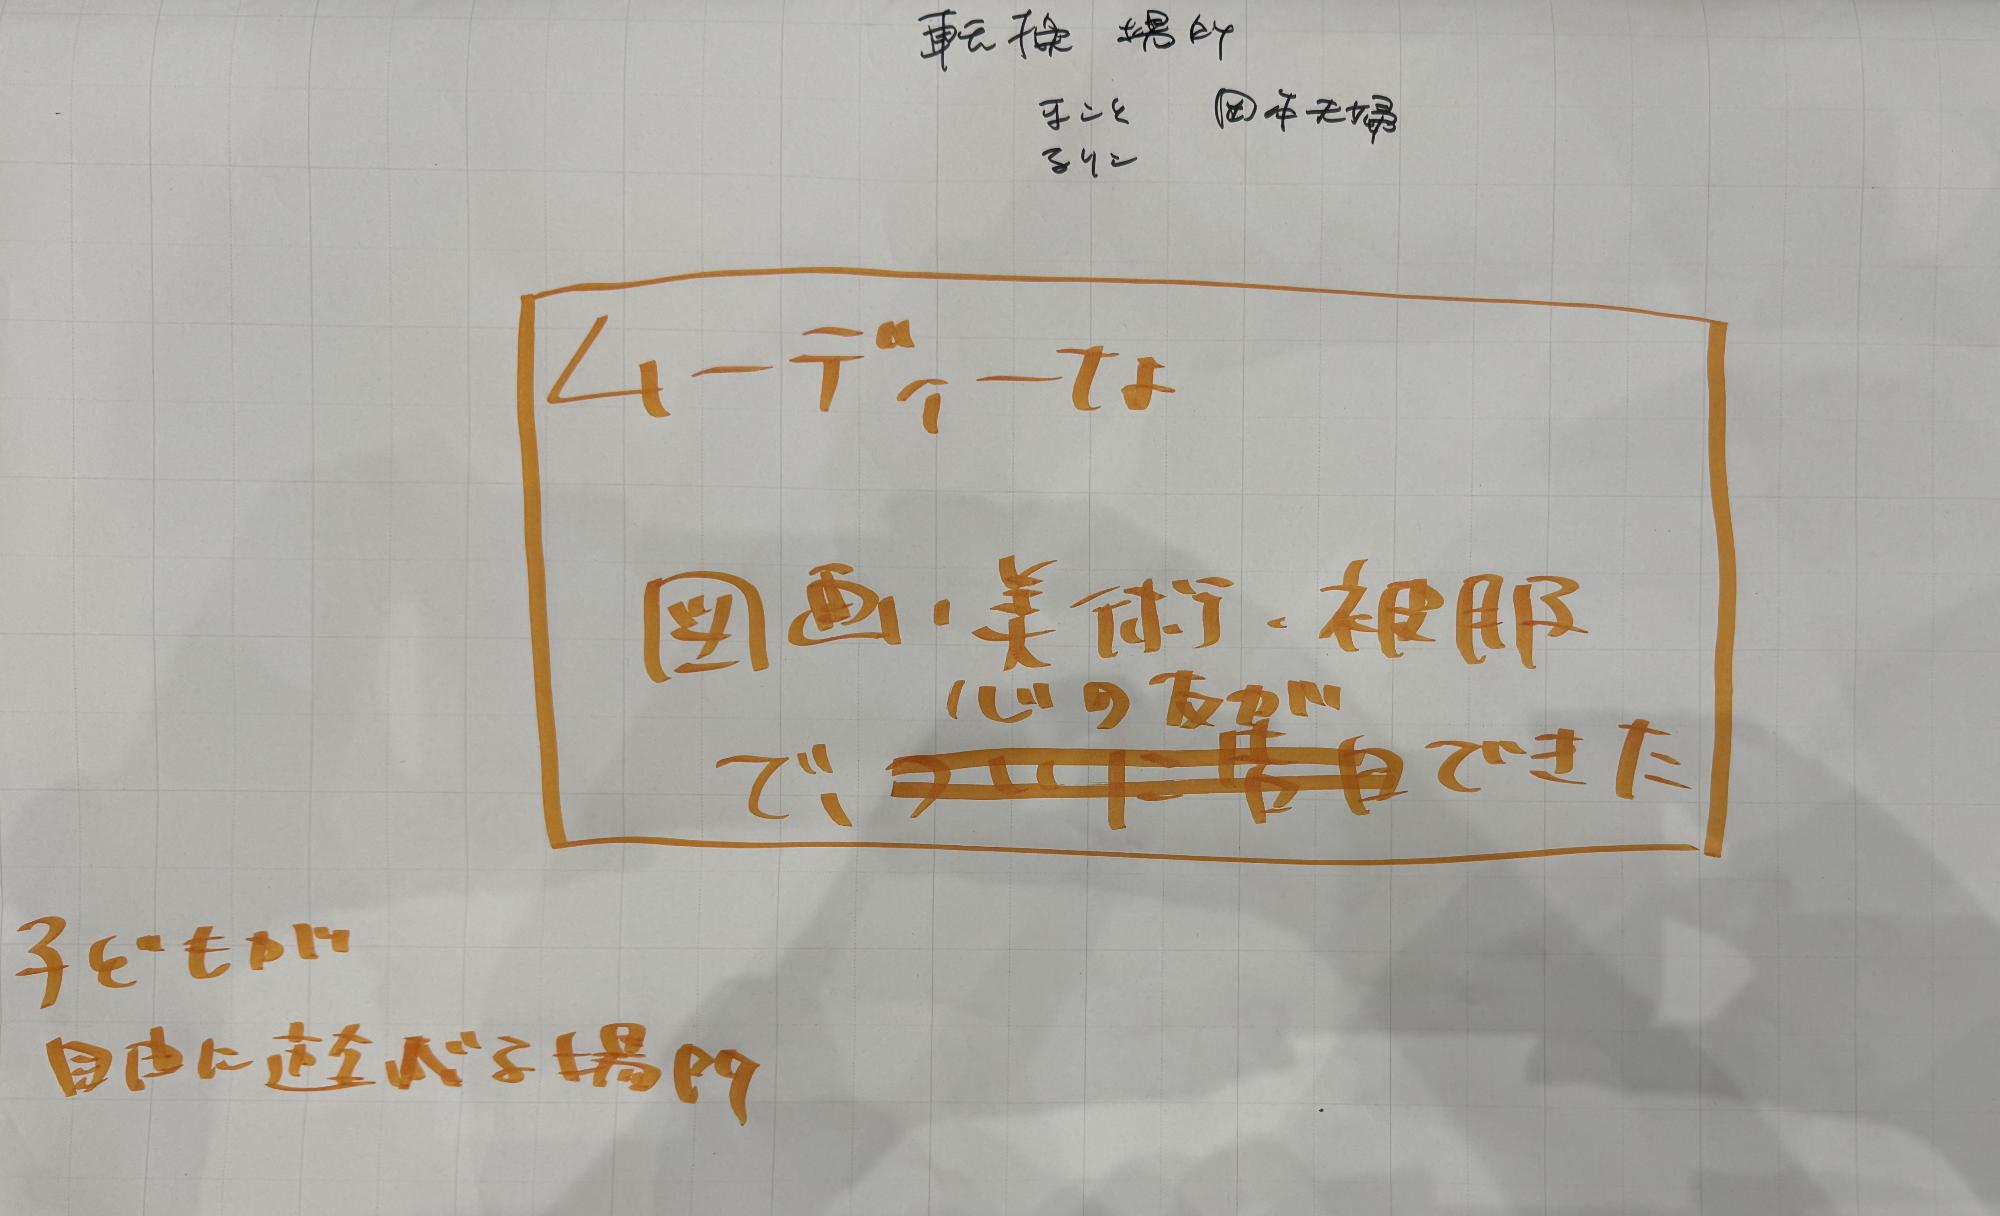 転換 場所
まこと 岡本夫婦
るリこ
ムーディーな
図画・美術・被服
心の友が
で、できた
子どもが
自由に遊べる場所